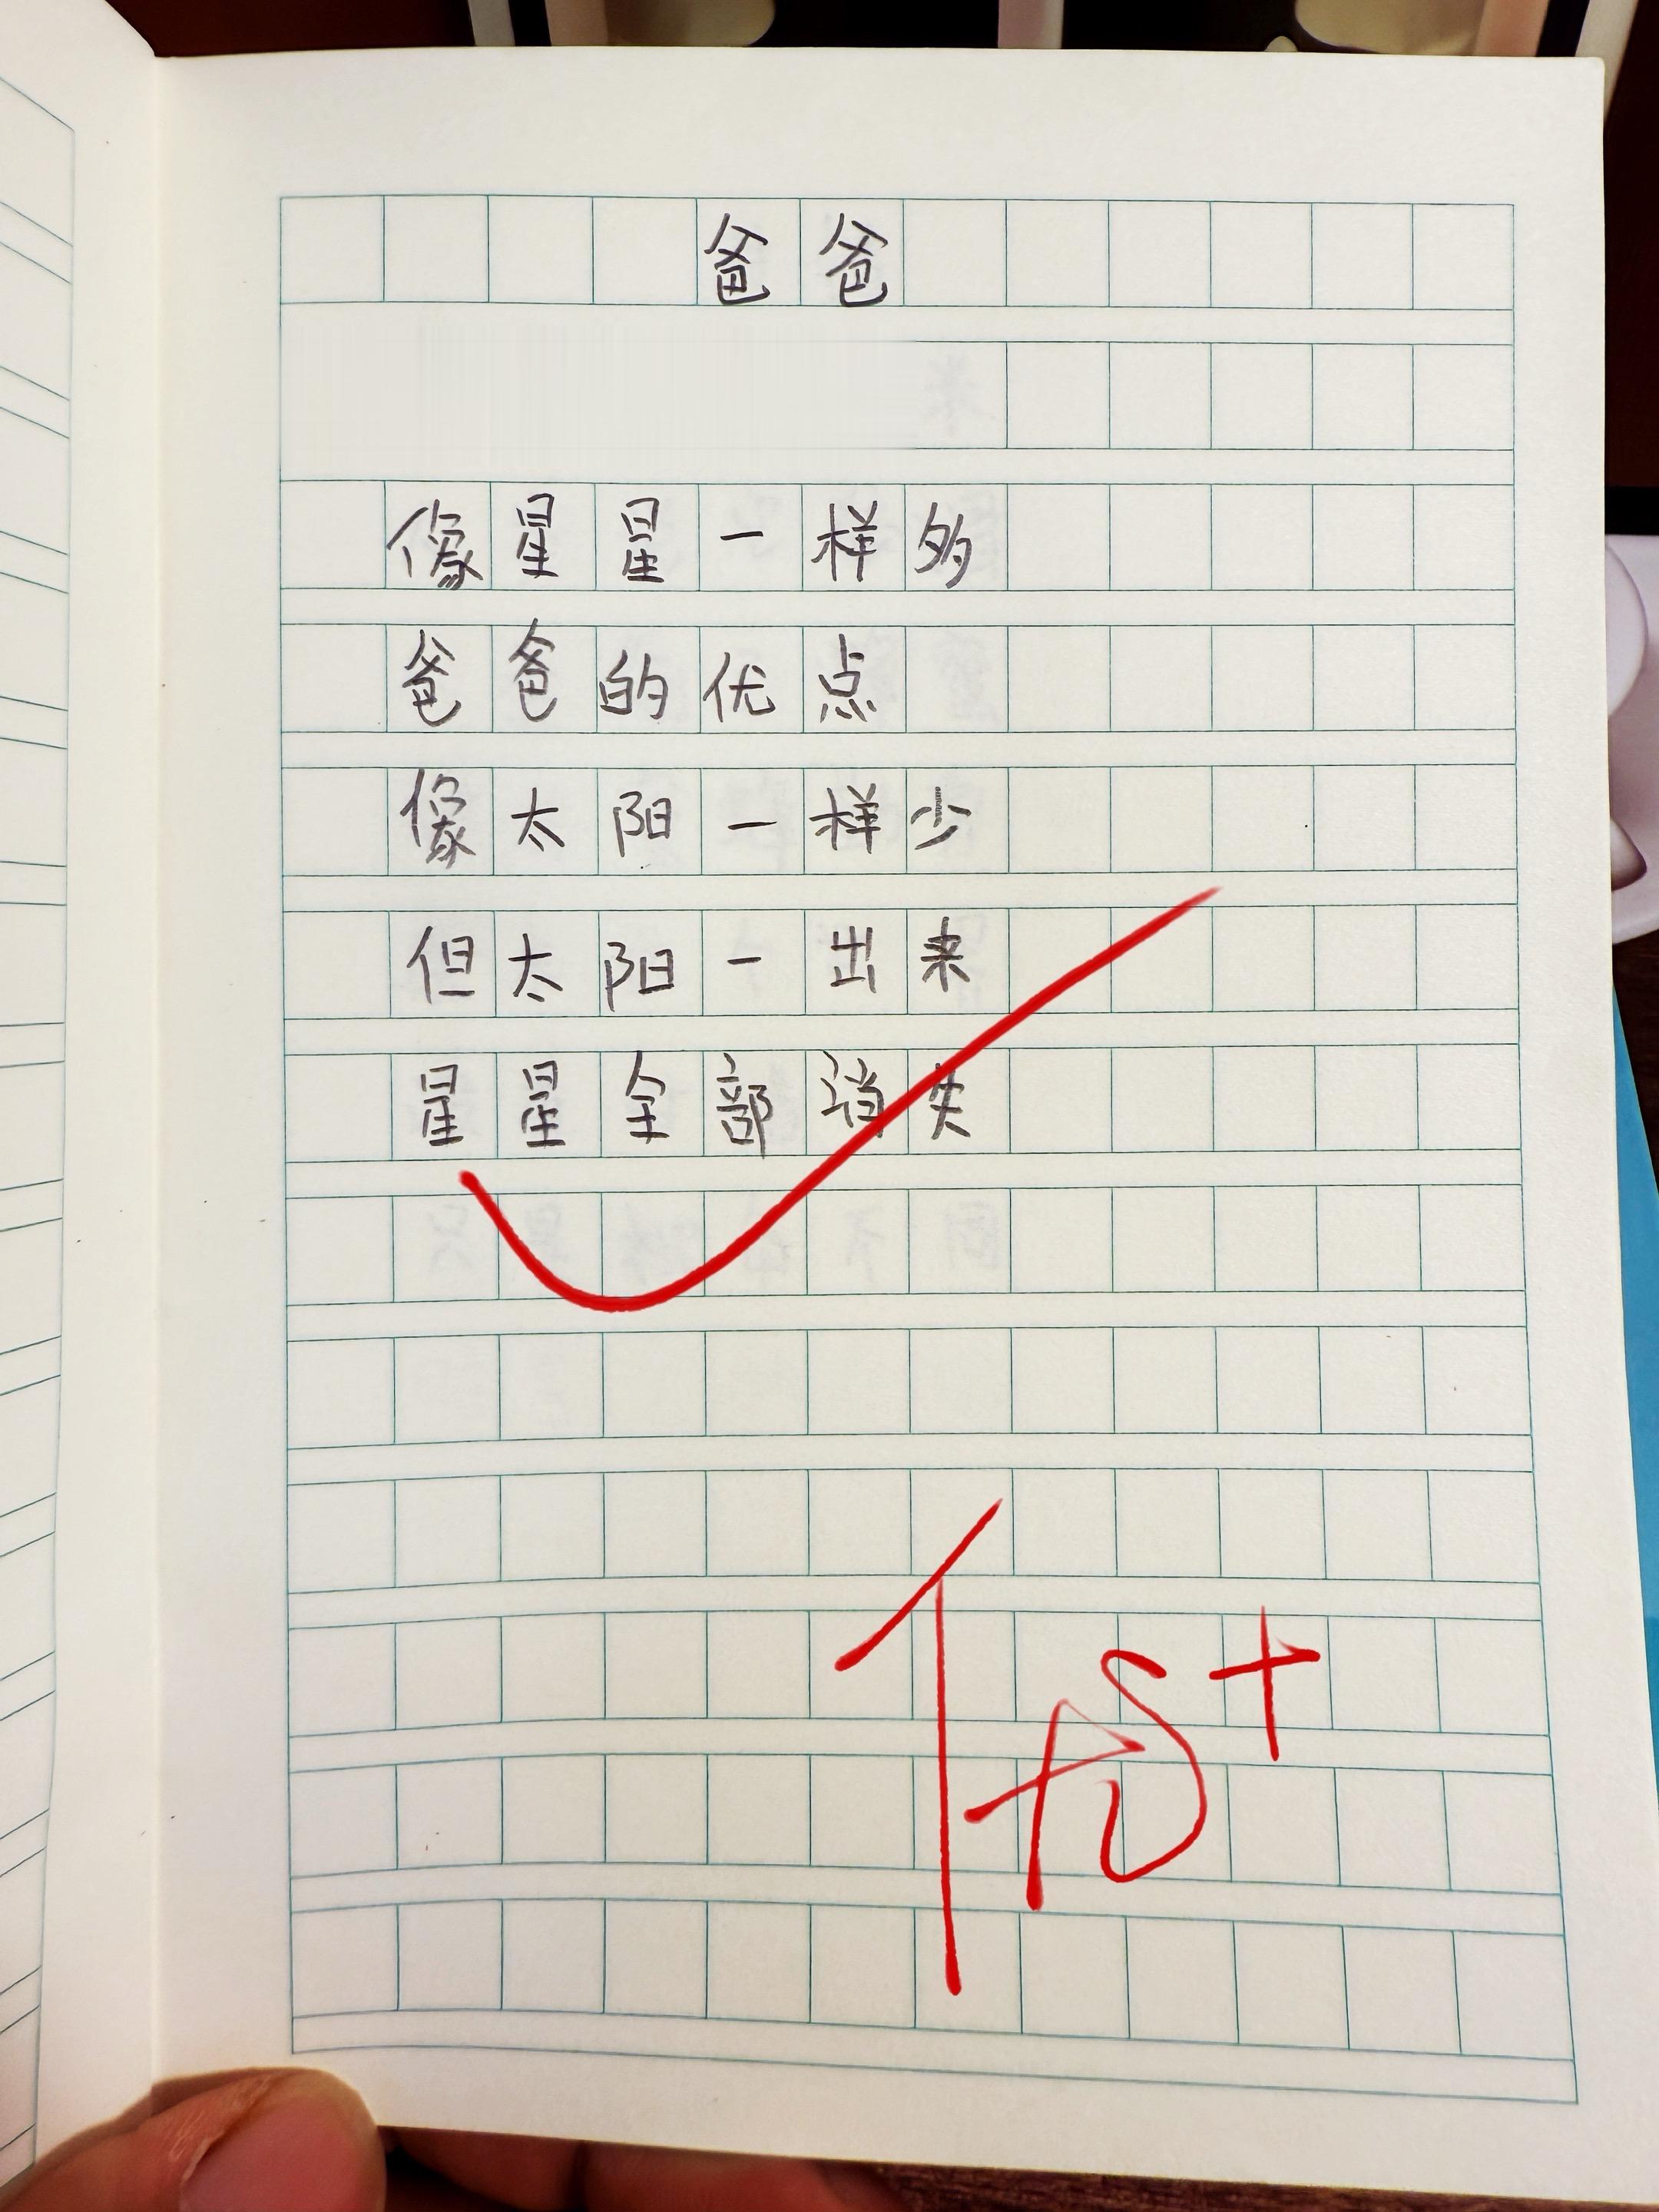 爸爸
像星星一样多
爸爸的优点
像太阳一样少
但太阳一出来
星星全部消失